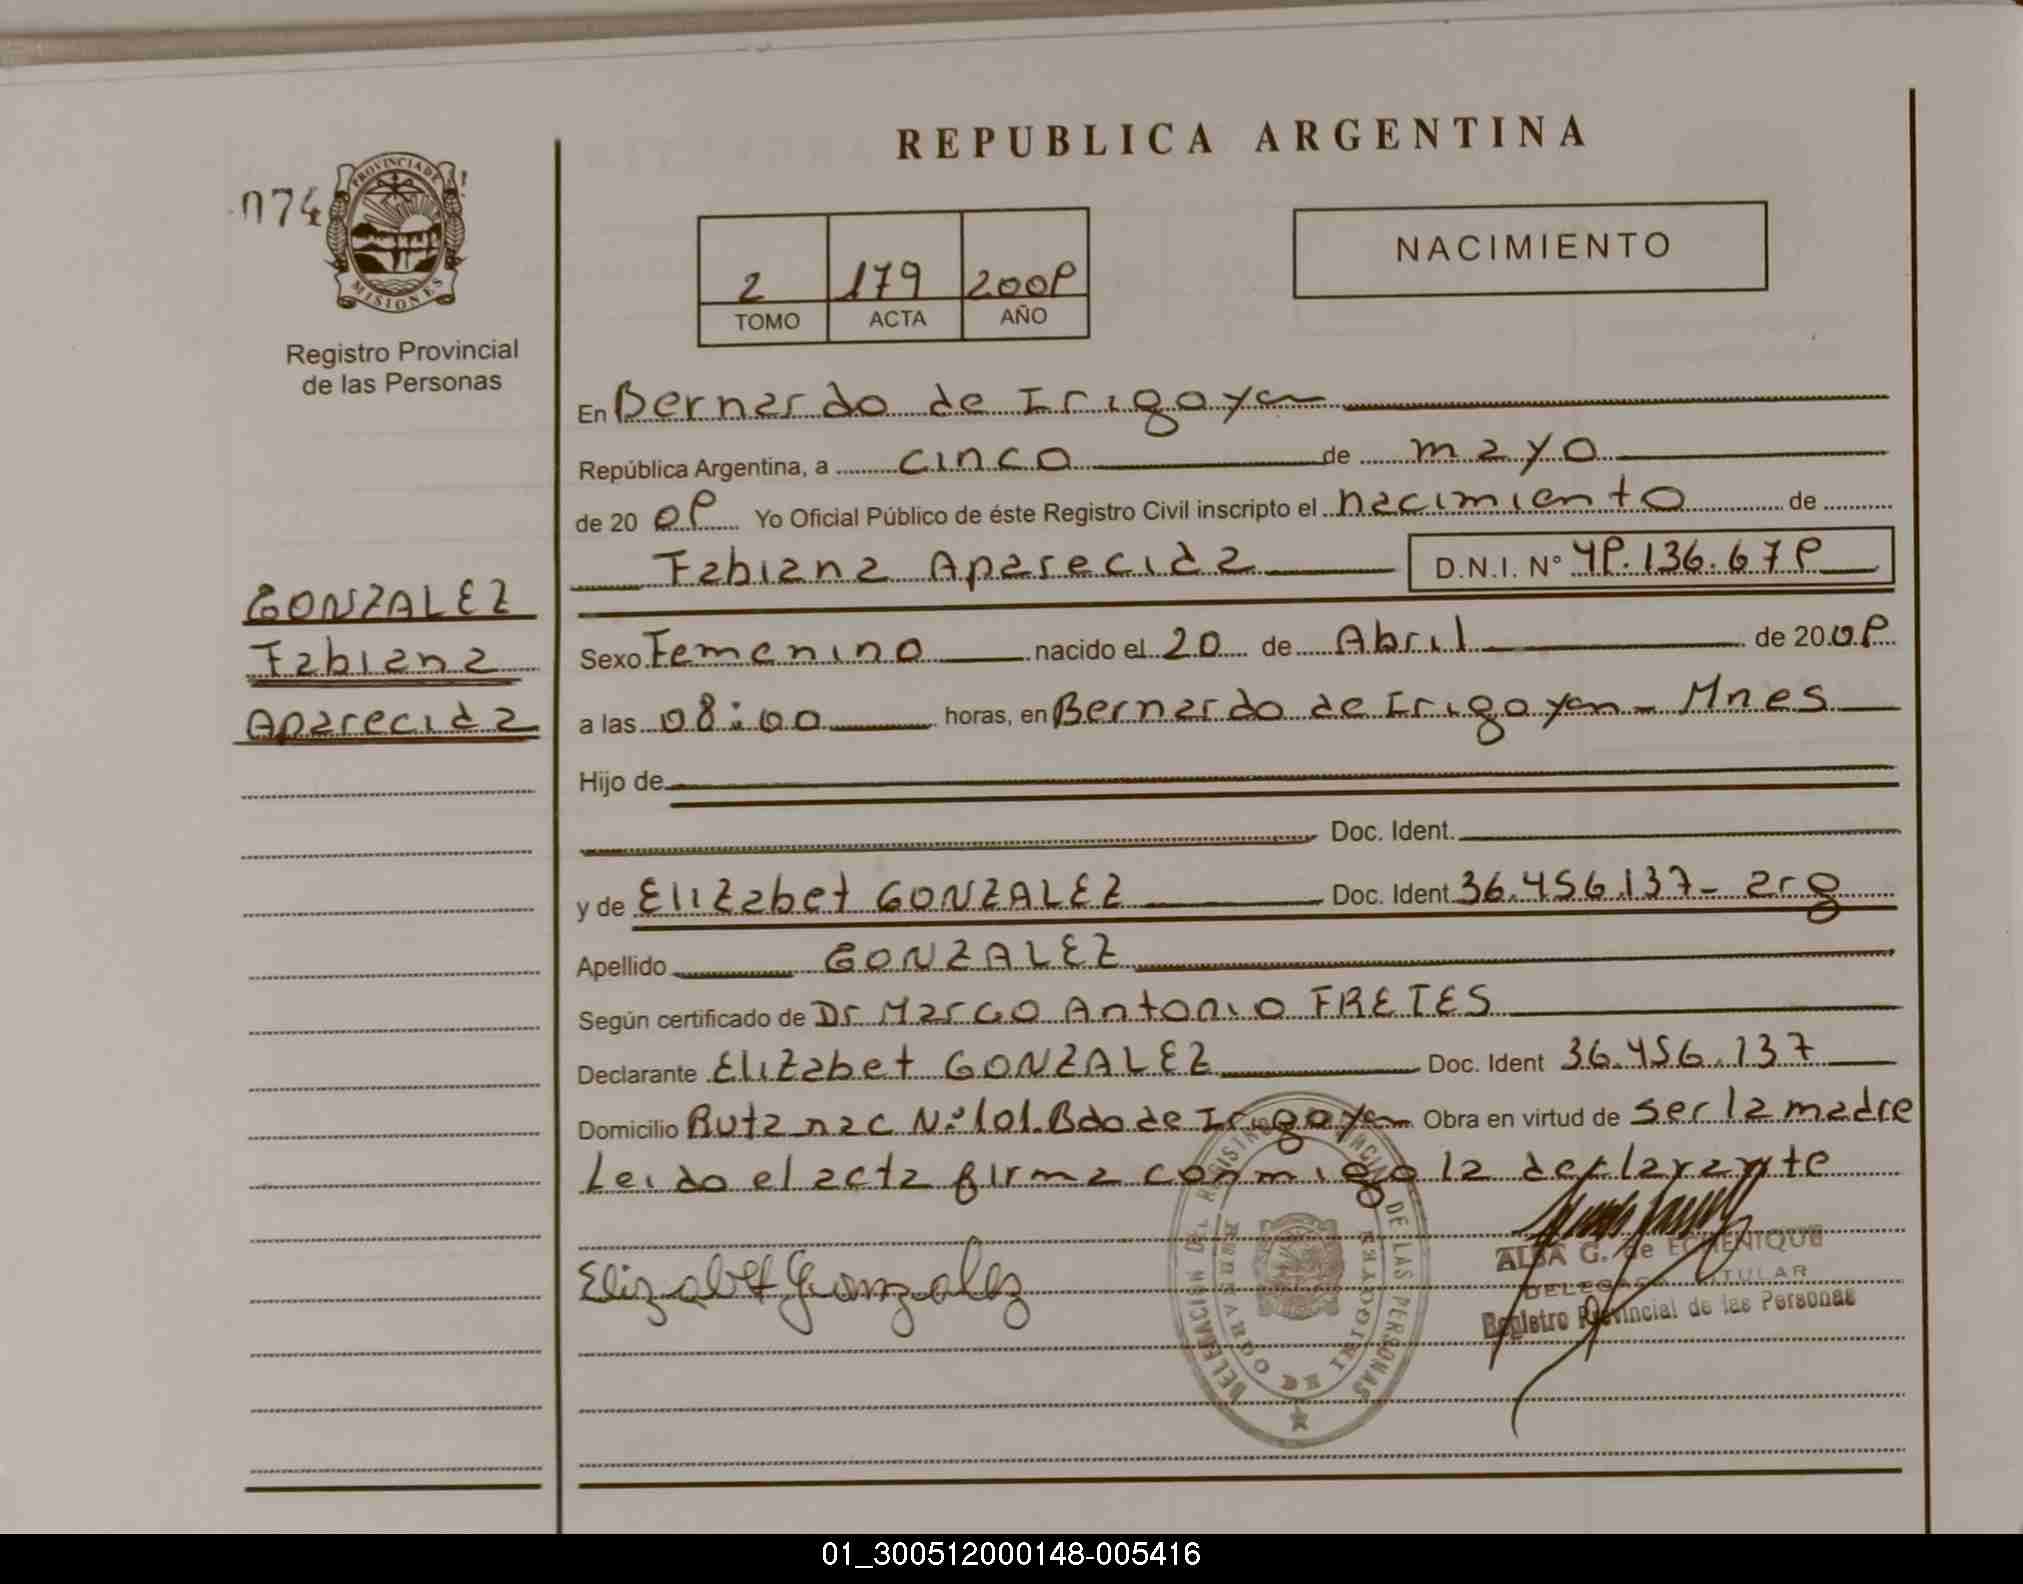 REPUBLICA ARGENTINA
074
PROVINCIA DE
MISIONES
Registro Provincial
de las Personas
2 179 2008
TOMO ACTA AÑO
NACIMIENTO
En Bernardo de Irigoyen
República Argentina, a cinco de mayo
de 20 08 Yo Oficial Público de éste Registro Civil inscripto el nacimiento de
Fabiana Aparecida D.N.I. Nº 48.136.678
GONZALEZ
Fabiana
Aparecida
Sexo Femenino nacido el 20 de Abril de 20 08
a las 08:00 horas, en Bernardo de Irigoyen - Mnes
Hijo de
Doc. Ident.
y de Elizabet GONZALEZ Doc. Ident 36.456.137- arg
Apellido GONZALEZ
Según certificado de Dr Marco Antonio FRETES
Declarante Elizabet GONZALEZ Doc. Ident 36.456.137
Domicilio Ruta nac Nº 101. Bdo de Irigoyen Obra en virtud de ser la madre
Leido el acta firma conmigo la declarante
Elizabet Gonzalez
DELEGACION DEL REGISTRO PROVINCIAL DE LAS PERSONAS
BERNARDO DE IRIGOYEN
ALBA G. de ECHENIQUE
DELEGADA TITULAR
Registro Provincial de las Personas
01_300512000148-005416